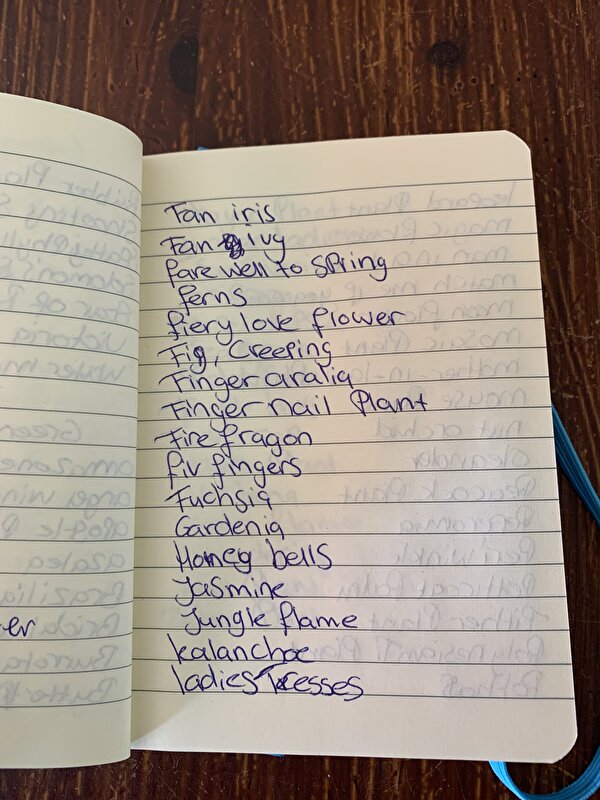 Fan iris
Fan ivy
farewell to spring
ferns
fiery love flower
Fig, Creeping
Finger aralia
Finger nail plant
Fire fragon
fiv fingers
Fuchsia
Gardenia
Honey bells
Jasmine
Jungle flame
kalanchoe
ladies tresses
er